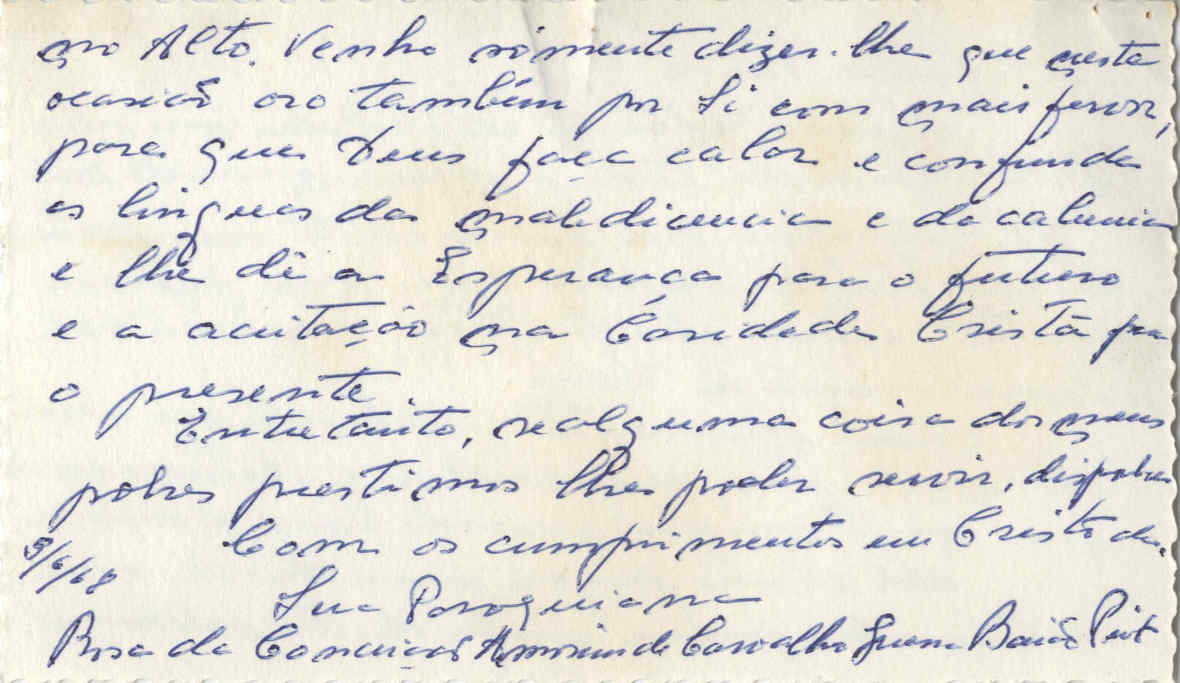 no Alto. Venho sòmente dizer-lhe que nesta
ocasião oro também por Si com mais fervor,
para que Deus faça calar e confunda
as linguas da maledicencia e da calunia
e lhe dê a Esperança para o futuro
e a aceitação na Caridade Cristã para
o presente.
Entretanto, se alguma coisa dos meus
pobres prestimos lhe poder servir, disponha
Com os cumprimentos em Cristo da
5/6/68
Sua Paroquiana
Rosa da Conceição Amorim de Carvalho Baião